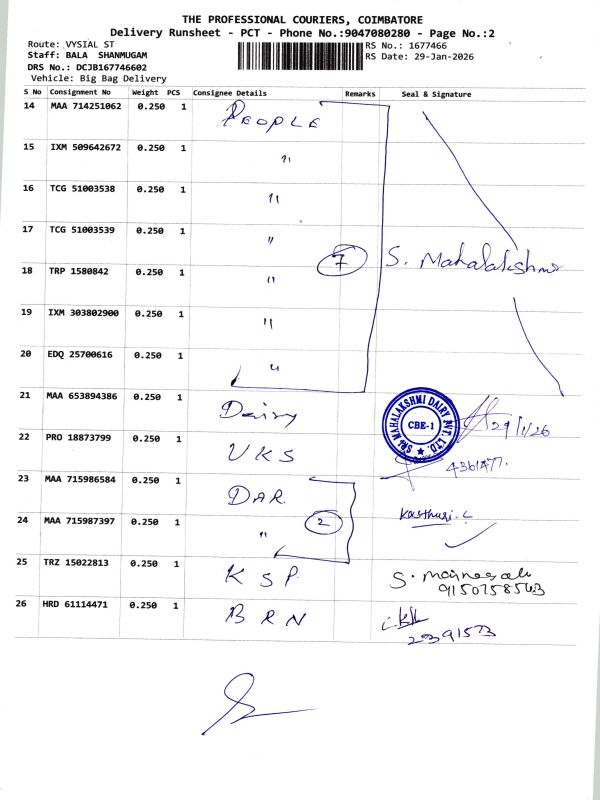 THE PROFESSIONAL COURIERS, COIMBATORE
Delivery Runsheet - PCT - Phone No.:9047080280 - Page No.:2
Route: VYSIAL ST
RS No.: 1677466
Staff: BALA SHANMUGAM
RS Date: 29-Jan-2026
DRS No.: DCJB167746602
Vehicle: Big Bag Delivery
S No Consignment No Weight PCS Consignee Details Remarks Seal & Signature
14 MAA 714251062 0.250 1 PEOPLE
15 IXM 509642672 0.250 1 "
16 TCG 51003538 0.250 1 "
17 TCG 51003539 0.250 1 " 7 S. Mahalakshmi
18 TRP 1580842 0.250 1 "
19 IXM 303802900 0.250 1 "
20 EDQ 25700616 0.250 1 "
21 MAA 653894386 0.250 1 Dairy SRI MAHALAKSHMI DAIRY PVT. LTD. CBE-1 29/1/26
22 PRO 18873799 0.250 1 VKS
23 MAA 715986584 0.250 1 DAR
24 MAA 715987397 0.250 1 " 2 Kasthuri. C
25 TRZ 15022813 0.250 1 KSP S.
9150758543
26 HRD 61114471 0.250 1 BRN
2391573